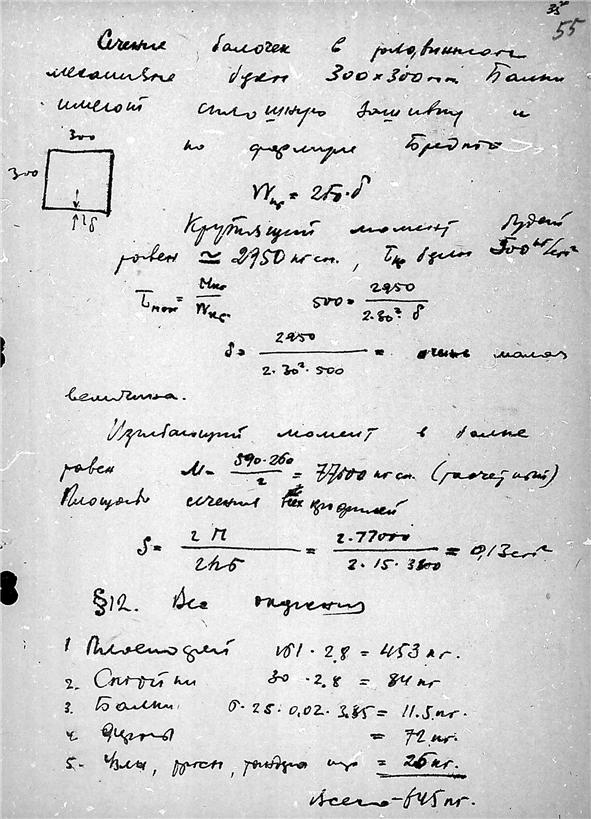 55
Сечение балочек в
механизме будет 300×300 mm Балки
имеют сплошную зашивку и
по формуле Бредта
300
300
Wкр = 2F₀·δ
Крутящий момент будет
равен ≃ 2950 кг см, τ будет 500 кг/см²
500 = 2950 / 2·30²·δ
δ = 2950 / 2·30²·500 = очень малая
величина.
Изгибающий момент в балке
равен M = 590·260 / 2 = 77000 кг см (расчетный)
Площадь сечения
S = 2M / 2hб = 2·77000 / 2·15·3800 = 0,13 cm²
§12. Вес оперения
1 Плоскостей 161·2,8 = 453 кг.
2. Стойки 30·2,8 = 84 кг
3. Балки 6·25·0,02·3,85 = 11.5 кг.
4. = 72 кг.
5. Узлы, = 25 кг.
Всего – 645 кг.